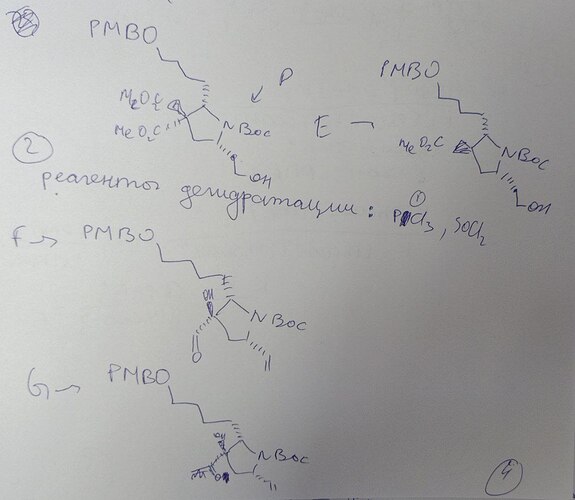 PMBO
PMBO
MeO₂C
MeO₂C
NBoc
OH
D
E
MeO₂C
NBoc
OH
2
реагенты дегидратации: PCl₃, SOCl₂
1
F → PMBO
OH
NBoc
O
G → PMBO
NBoc
4